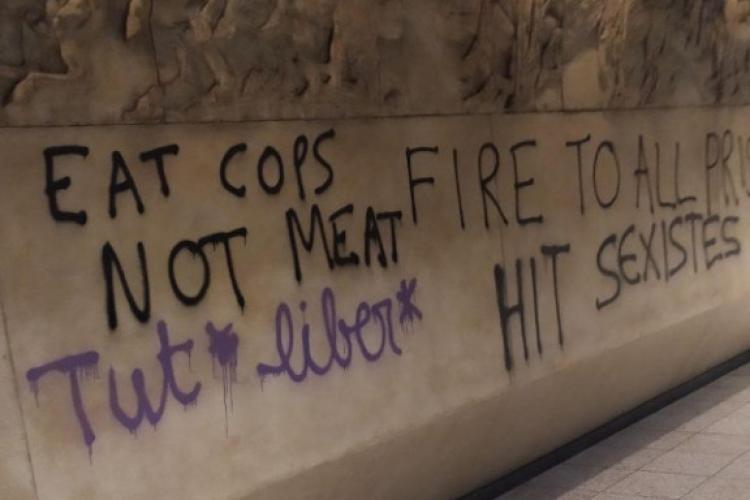 EAT COPS
NOT MEAT
Tut* liber*
FIRE TO ALL
HIT SEXISTES